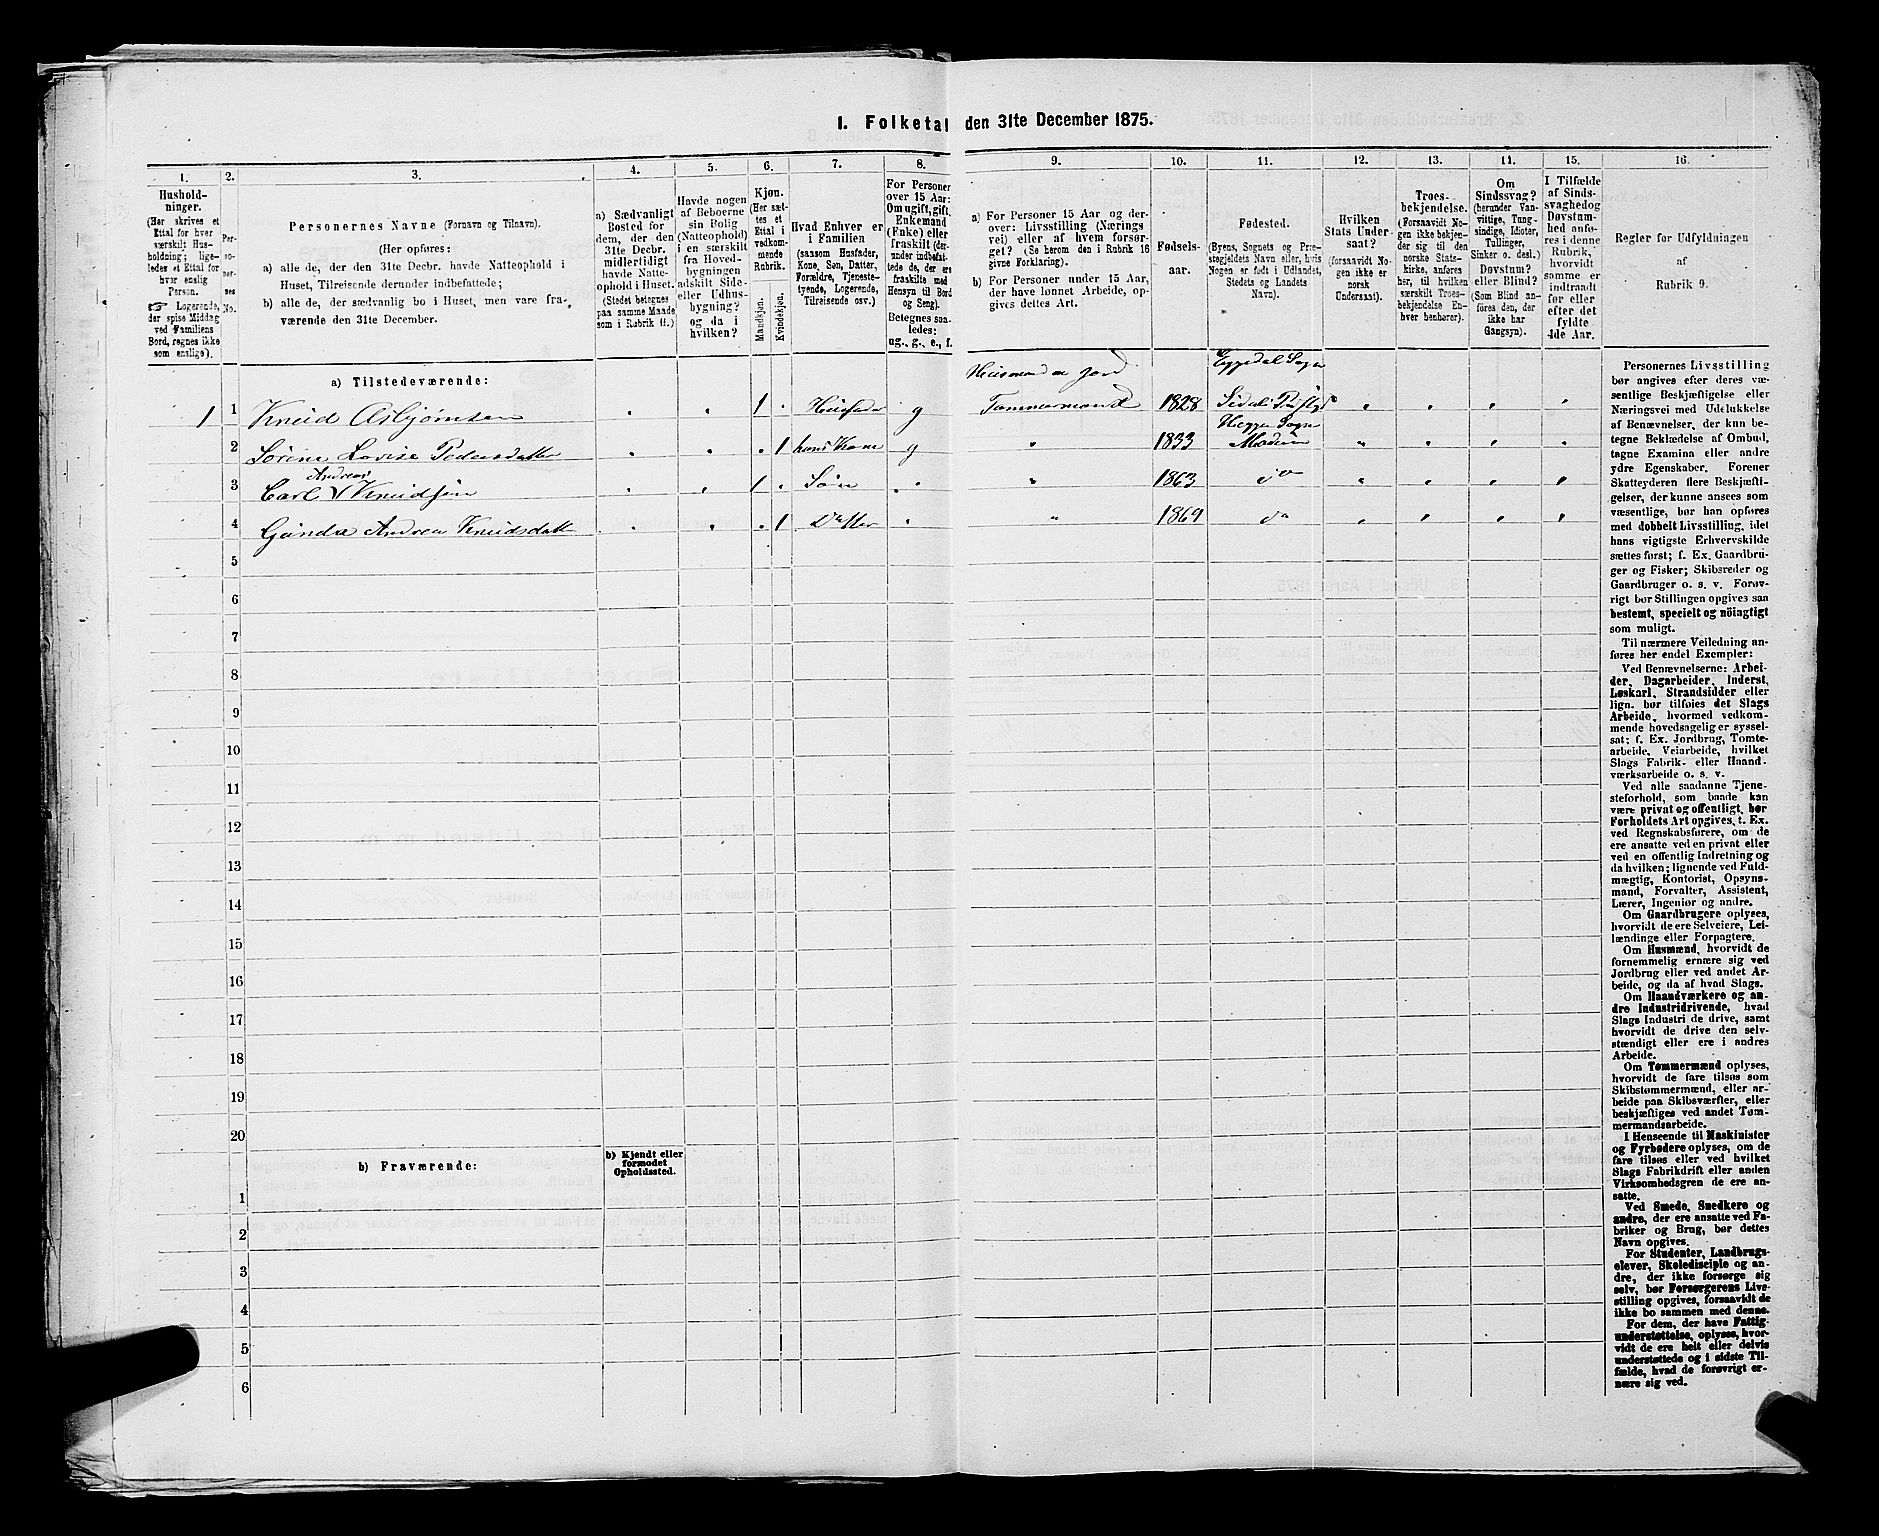 1. Folketal den 31te December 1875.
1.
Hushold-
ninger.
(Her skrives et
Ettal for hver
særskilt Hus-
holdning; lige-
ledes et Ettal for
hver enslig
Person.
☞ Logerende,
der spise Middag
ved Familiens
Bord, regnes ikke
som enslige).
2.
Per-
so-
ner-
nes
No.
3.
Personernes Navne (Fornavn og Tilnavn).
(Her opføres:
a) alle de, der den 31te Decbr. havde Natteophold i
Huset, Tilreisende derunder indbefattede;
b) alle de, der sædvanlig bo i Huset, men vare fra-
værende den 31te December.
4.
a) Sædvanligt
Bosted for
dem, der den
31te Decbr.
midlertidigt
havde Natte-
ophold i Huset.
(Stedet betegnes
paa samme Maade
som i Rubrik 11.)
5.
Havde nogen
af Beboerne
sin Bolig
(Natteophold)
i en særskilt
fra Hoved-
bygningen
adskilt Side-
eller Udhus-
bygning?
og da i
hvilken?
6.
Kjøn.
(Her sæt-
tes et
Ettal i
vedkom-
mende
Rubrik.
Mandkjøn.
Kvindekjøn.
7.
Hvad Enhver er
i Familien
(saasom Husfader,
Kone, Søn, Datter,
Forældre, Tjeneste-
tyende, Logerende,
Tilreisende osv.)
8.
For Personer
over 15 Aar:
Om ugift, gift,
Enkemand
(Enke) eller
fraskilt (der-
under indbefat-
tede de, der ere
fraskilte med
Hensyn til Bord
og Seng).
Betegnes saa-
ledes:
ug., g., e., f.
9.
a) For Personer 15 Aar og der-
over: Livsstilling (Nærings
vei) eller af hvem forsør-
get? (Se herom den i Rubrik 16
givne Forklaring).
b) For Personer under 15 Aar,
der have lønnet Arbeide, op-
gives dettes Art.
10.
Fødsels-
aar.
11.
Fødested.
(Byens, Sognets og Præ-
stegjeldets Navn eller, hvis
Nogen er født i Udlandet,
Stedets og Landets
Navn).
12.
Hvilken
Stats Under-
saat?
(forsaavidt No-
gen ikke er
norsk
Undersaat).
13.
Troes-
bekjendelse.
(Forsaavidt No-
gen ikke bekjen-
der sig til den
norske Stats-
kirke, anføres
her, til hvilken
særskilt Troes-
bekjendelse En-
hver henhører).
14.
Om
Sindssvag?
(herunder Van-
vittige, Tung-
sindige, Idioter,
Tullinger,
Sinker o. desl.)
Døvstum?
eller Blind?
(Som Blind an-
føres den, der
ikke har
Gangsyn).
15.
I Tilfælde
af Sinds-
svaghed og
Døvstum-
hed anfø-
res i denne
Rubrik,
hvorvidt
samme er
indtraadt
før eller
efter det
fyldte
4de Aar.
16.
Regler for Udfyldningen
af
Rubrik 9.
a) Tilstedeværende:
Huusmand m jord Eggedal Sogn
1 1 Knud Asbjørnsen 1 Huusfader g Tømmermand 1828 Sigdals Præstgj
Heggen Sogn
2 Sørine Lovise Pedersdatt 1 hans Kone g " 1833 Modum
Andreas
3 Carl V Knudsen 1 Søn " 1863 do
4 Gunda Andrea Knudsdatt 1 Datter " 1869 do
5
6
7
8
9
10
11
12
13
14
15
16
17
18
19
20
b) Fraværende:
b) Kjendt eller
formodet
Opholdssted.
1
2
3
4
5
6
Personernes Livsstilling
bør angives efter deres væ-
sentlige Beskjæftigelse eller
Næringsvei med Udelukkelse
af Benævnelser, der kun be-
tegne Beklædelse af Ombud,
tagne Examina eller andre
ydre Egenskaber. Forener
Skatteyderen flere Beskjæfti-
gelser, der kunne ansees som
væsentlige, bør han opføres
med dobbelt Livsstilling, idet
hans vigtigste Erhvervskilde
sættes først; f. Ex. Gaardbru-
ger og Fisker; Skibsreder og
Gaardbruger o. s. v. Forøv-
rigt bør Stillingen opgives saa
bestemt, specielt og nöiagtigt
som muligt.
Til nærmere Veiledning an-
føres her endel Exempler:
Ved Benævnelserne: Arbei-
der, Dagarbeider, Inderst,
Løskarl, Strandsidder eller
lign. bør tilføies det Slags
Arbeide, hvormed vedkom-
mende hovedsagelig er syssel-
sat; f. Ex. Jordbrug, Tomte-
arbeide, Veiarbeide, hvilket
Slags Fabrik- eller Haand-
værksarbeide o. s. v.
Ved alle saadanne Tjene-
steforhold, som baade kan
være privat og offentligt, bør
Forholdets Art opgives, t. Ex.
ved Regnskabsførere, om de
ere ansatte ved en privat eller
ved en offentlig Indretning og
da hvilken; lignende ved Fuld-
mægtig, Kontorist, Opsyns-
mand, Forvalter, Assistent,
Lærer, Ingeniør og andre.
Om Gaardbrugere oplyses,
hvorvidt de ere Selveiere, Lei-
lændinge eller Forpagtere.
Om Husmænd, hvorvidt de
fornemmelig ernære sig ved
Jordbrug eller ved andet Ar-
beide, og da af hvad Slags.
Om Haandværkere og an-
dre Industridrivende, hvad
Slags Industri de drive, samt
hvorvidt de drive den selv-
stændigt eller ere i andres
Arbeide.
Om Tømmermænd oplyses,
hvorvidt de fare tilsøs som
Skibstømmermænd, eller ar-
beide paa Skibsværfter, eller
beskjæftiges ved andet Tøm-
mermandsarbeide.
I Henseende til Maskinister
og Fyrbødere oplyses, om de
fare tilsøs eller ved hvilket
Slags Fabrikdrift eller anden
Virksomhedsgren de ere an-
satte.
Ved Smede, Snedkere og
andre, der ere ansatte ved Fa-
briker og Brug, bør dettes
Navn opgives.
For Studenter, Landbrugs-
elever, Skoledisciple og an-
dre, der ikke forsørge sig
selv, bør Forsørgerens Livs-
stilling opgives, forsaavidt de
ikke bo sammen med denne.
For dem, der have Fattig-
understøttelse, oplyses, hvor-
vidt de ere helt eller delvis
understøttede og i sidste Til-
fælde, hvad de forøvrigt er-
nære sig ved.